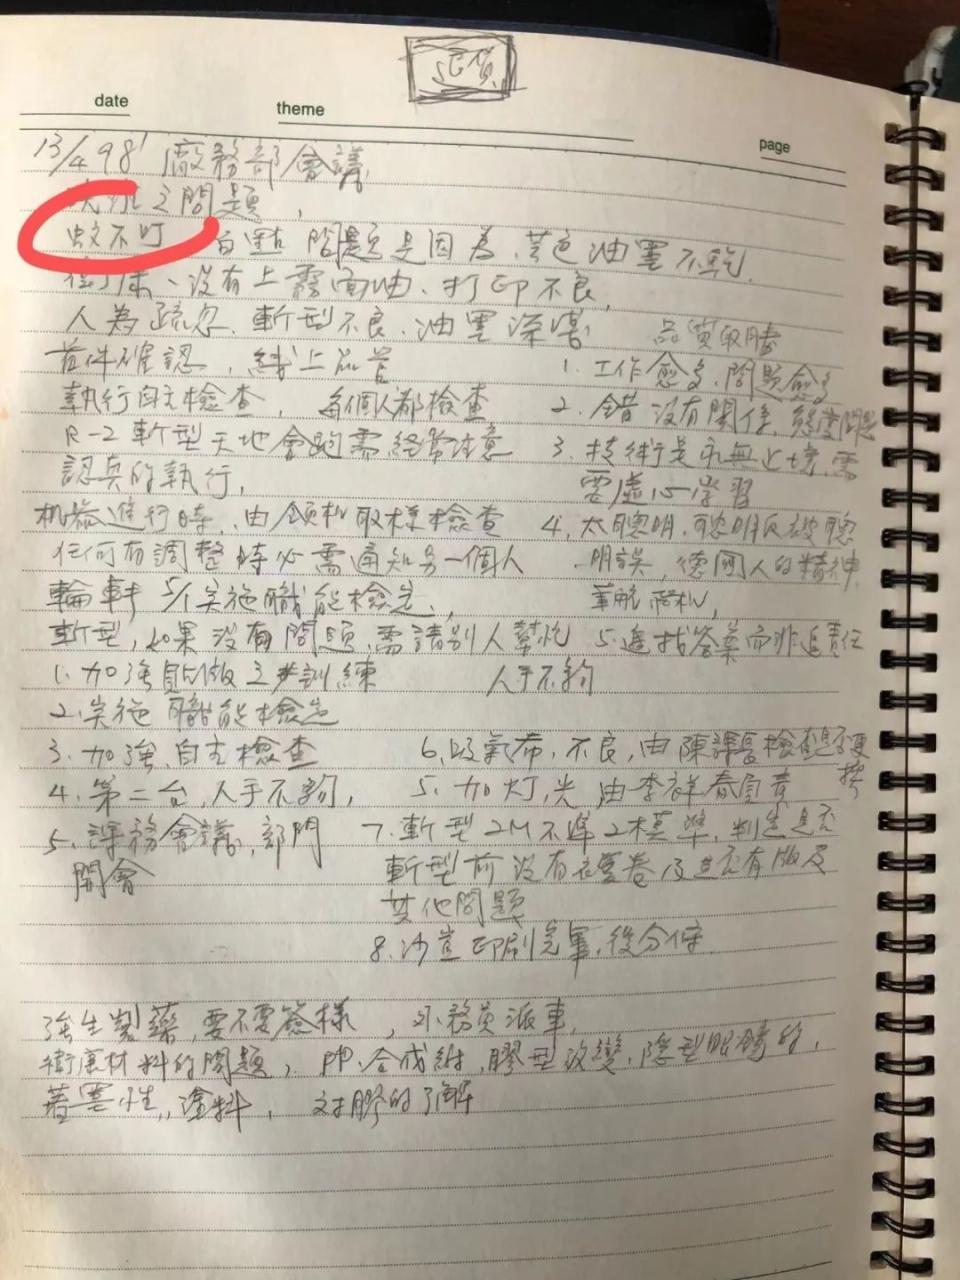 品質
date theme page
13/4 98' 廠務部會議
之問題,
蚊不叮 白點 問題是因為黃色油墨不乾
、沒有上霧面油、打印不良,
人為疏忽、斬型不良、油墨深淺
品質取勝
首件確認,線上品管
1. 工作愈多,問題愈多
執行自主檢查,每個人都檢查
2. 錯沒有關係,態度問題
R-2 斬型天地會跑需經常注意
3. 技術是永無止境,需
認真的執行,
要虛心學習
机器進行時、由領机取樣檢查
4. 太聰明,聰明反被聰
任何有調整時必需通知另一個人
明誤,德國人的精神,
輪軒 5/1 实施職能檢定、
華航 商机,
斬型,如果沒有問題,需請別人幫忙
5. 追找答案而非追責任
1. 加強 訓練
人手不夠
2. 实施職能檢定
3. 加強自主檢查
6. 吸氣布,不良,由陳 檢查是否更換
4. 第二台,人手不夠,
5. 加灯光 由李祥春負責
5. 課務會議,部門
7. 斬型 2M 不準 2 標準,判定是否
開會
斬型前沒有 及是否有版及
其他問題
8. 沙宣印刷完畢,後分條
強生製藥,要不要簽樣,外務員派車,
衛康材料的問題,PP,合成紙,膠型改變,隱型眼鏡的,
著墨性,塗料,對膠的了解